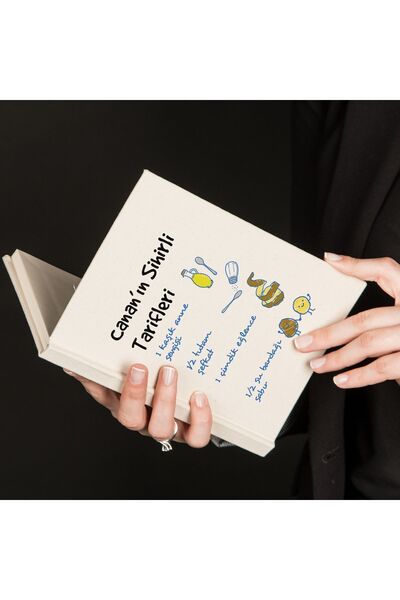 Canan'ın Sihirli
Tarifleri
1 kaşık anne
sevgisi
1/2 tutam
şefkat
1 çimdik eğlence
1/2 su bardağı
sabır